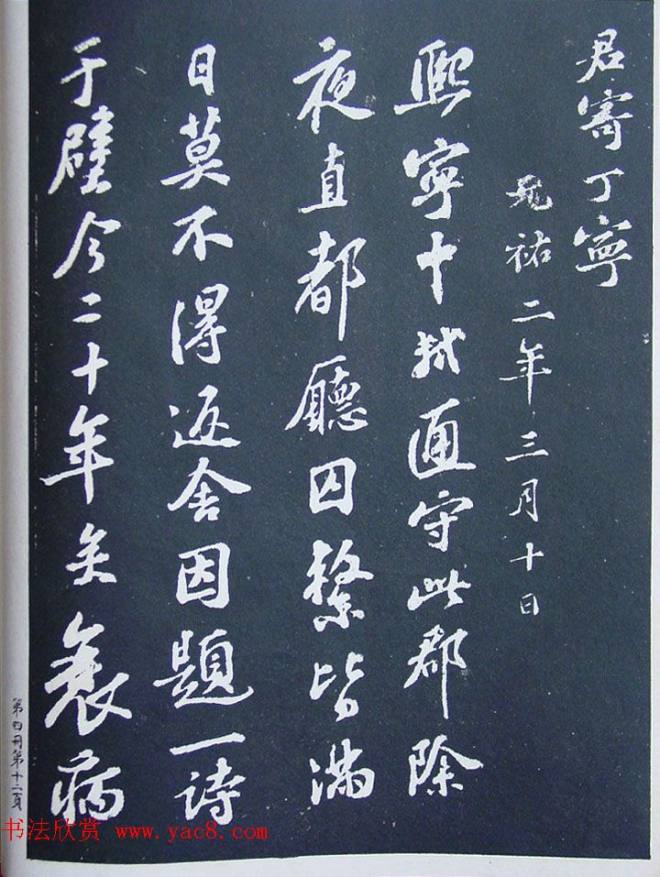 君寄丁寧
元祐二年三月十日
熙寧中軾通守此郡除
夜直都廳囚繫皆滿
日莫不得返舍因題一詩
于壁今二十年矣衰病
第四冊第十二頁
书法欣赏 www.yac8.com